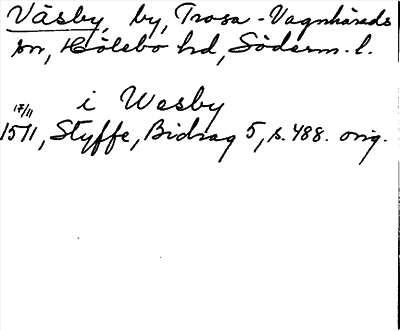 Väsby, by, Trosa-Vagnhärads
sn, Hölebo hd, Söderm. l.
i Wesby
17/11
1511, Styffe, Bidrag 5, s. 488. orig.